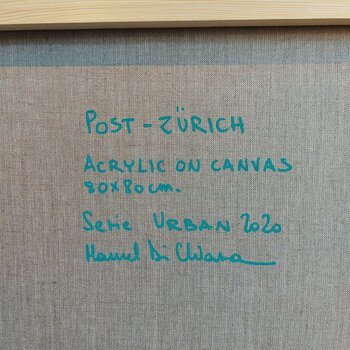 POST-ZÜRICH
ACRYLIC ON CANVAS
80x80cm.
Serie URBAN 2020
Manuel Di Chiara